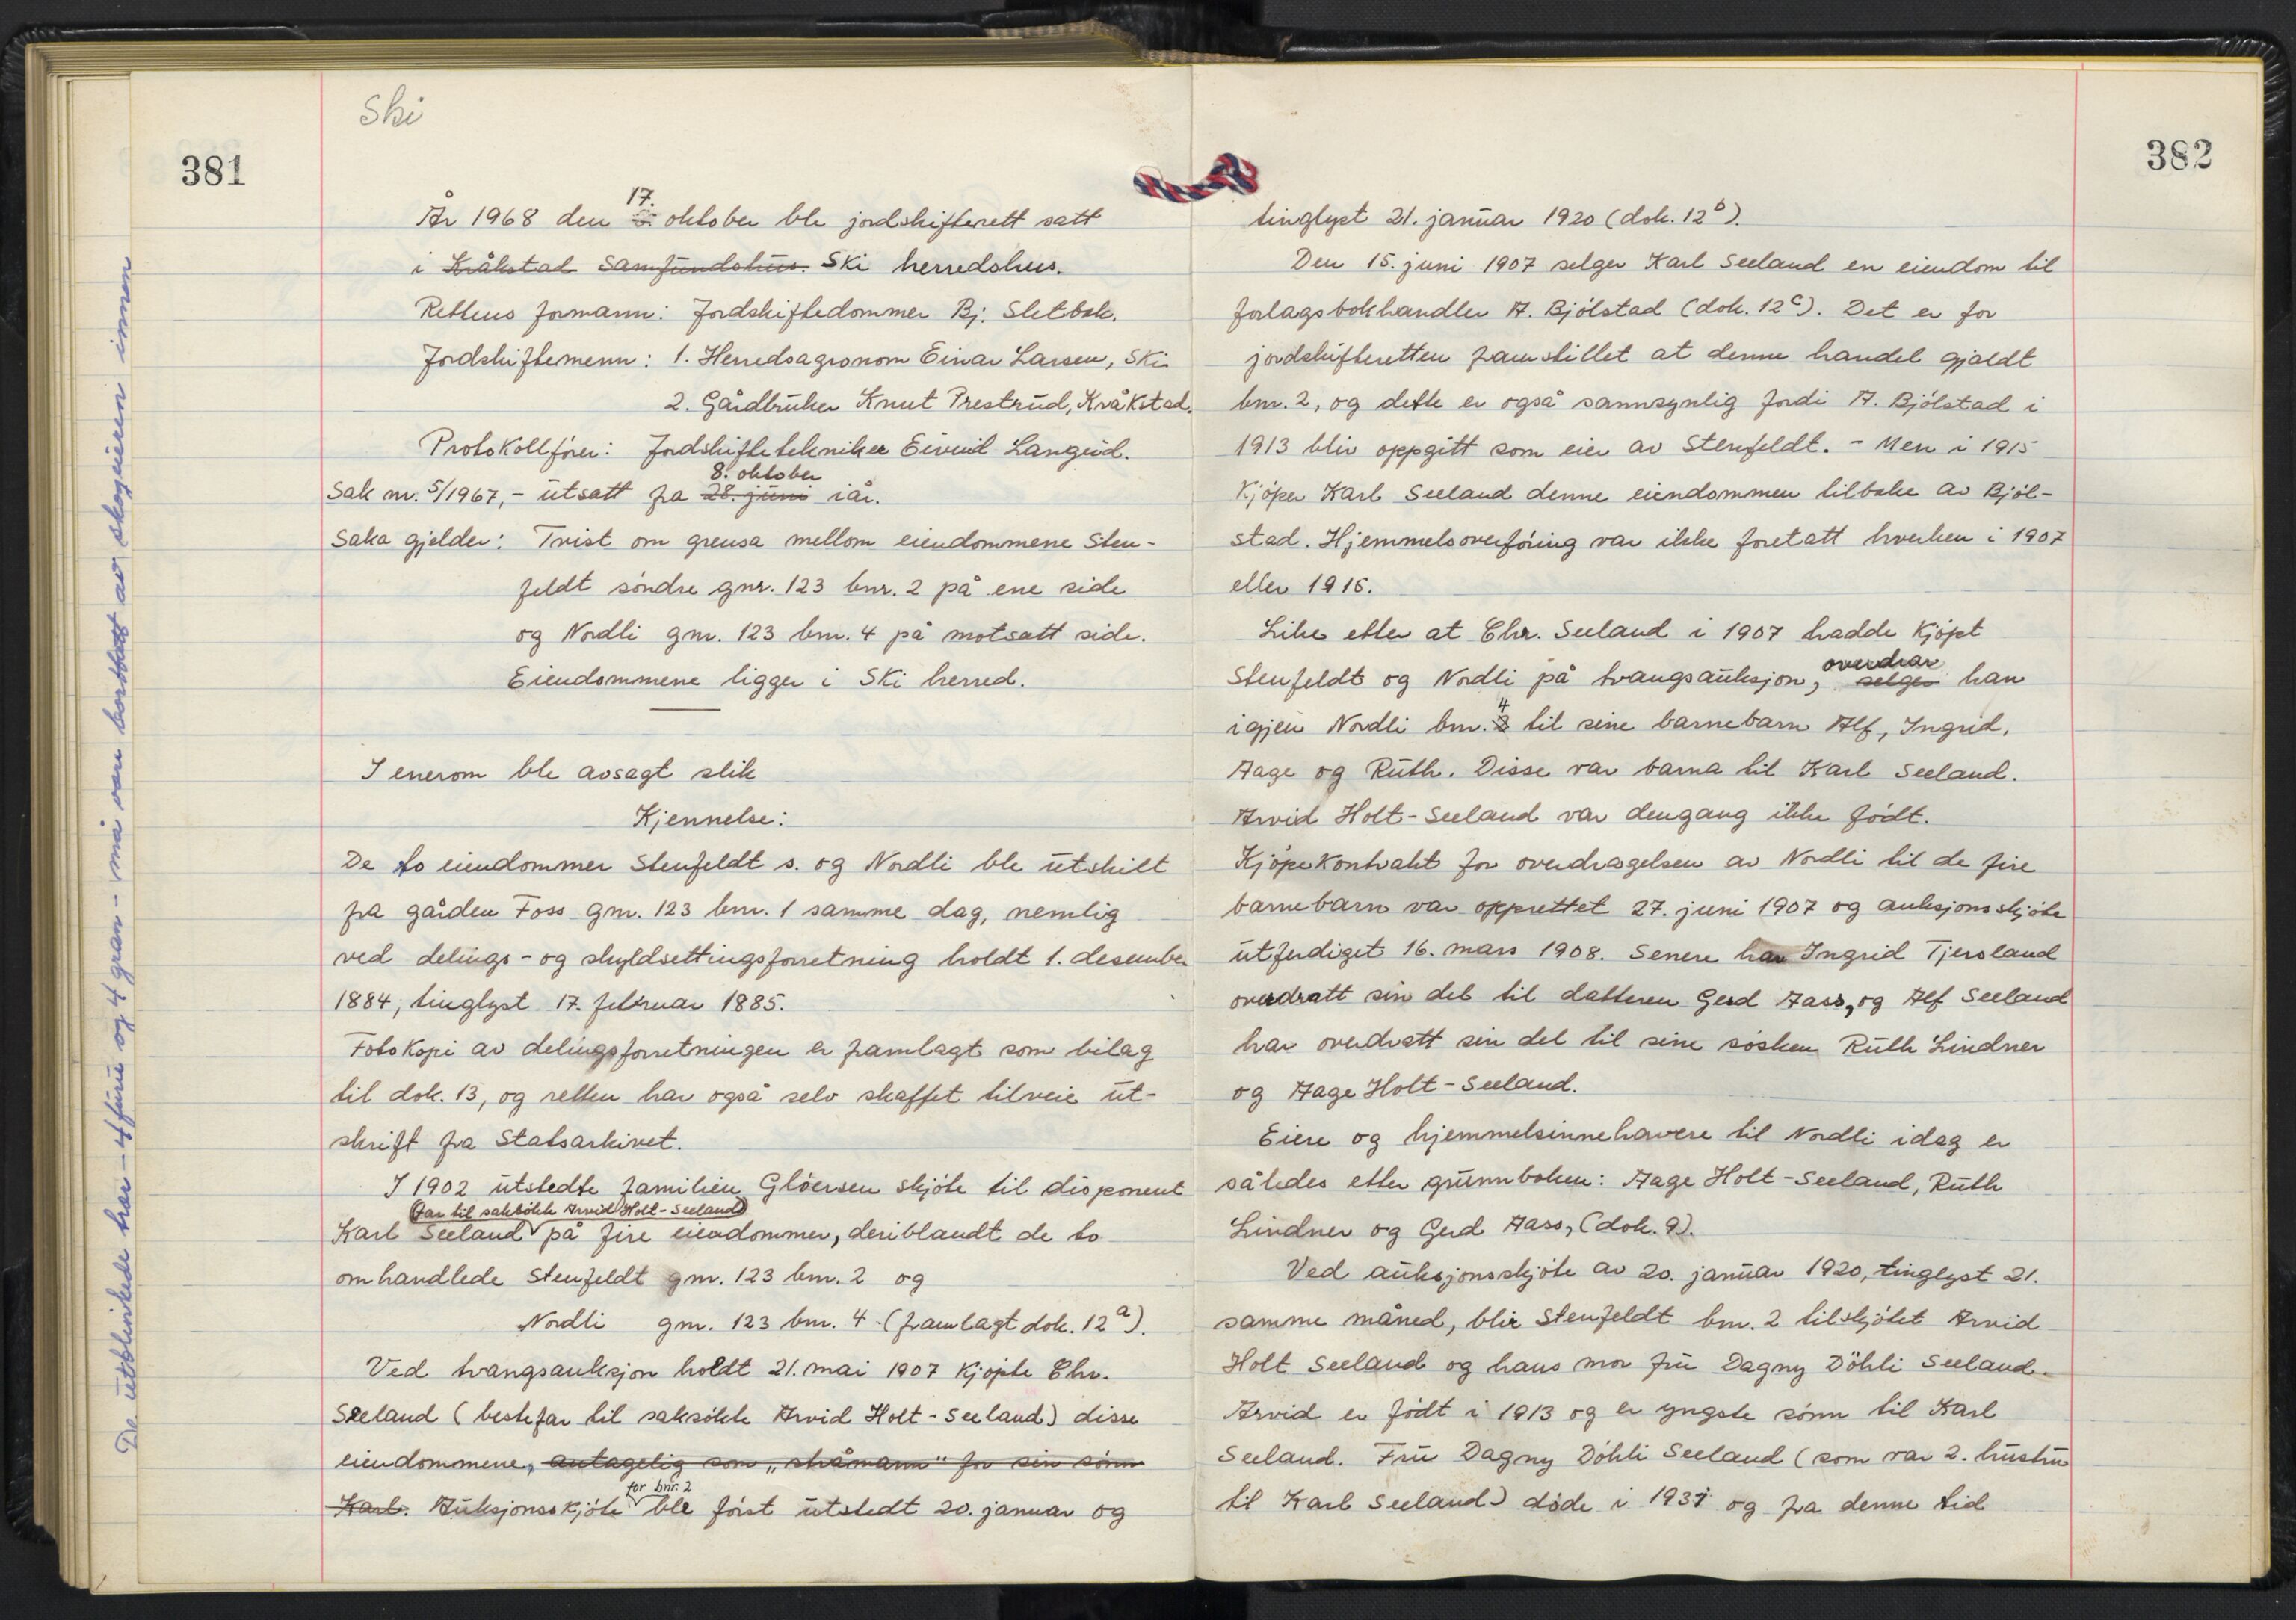 Ski
381
År 1968 den 17. oktober ble jordskifterett satt
i Kråkstad Samfundshus. Ski herredshus.
Rettens formann: Jordskiftedommer Bj. Sletbak.
Jordskiftemenn: 1. Herredsagronom Einar Larsen, Ski
2. Gårdbruker Knut Prestrud, Kråkstad.
Protokollfører: Jordskiftetekniker Eivind Langeid.
8. oktober
Sak nr. 5/1967, - utsatt fra 28. juni iår.
Saka gjelder: Tvist om grensa mellom eiendommene Sten-
feldt søndre gnr. 123 bnr. 2 på ene side
og Nordli gnr. 123 bnr. 4 på motsatt side.
Eiendommene ligger i Ski herred.
I enerom ble avsagt slik
Kjennelse:
De to eiendommer Stenfeldt s. og Nordli ble utskilt
fra gården Foss gnr. 123 bnr. 1 samme dag, nemlig
ved delings- og skyldsettingsforretning holdt 1. desember
1884, tinglyst 17. februar 1885.
Fotokopi av delingsforretningen er framlagt som bilag
til dok. 13, og retten har også selv skaffet tilveie ut-
skrift fra Statsarkivet.
I 1902 utstedte familien Glöersen skjöte til disponent
(far til saksökte Arvid Holt-Seeland)
Karl Seeland på fire eiendommer, deriblandt de to
omhandlede Stenfeldt gnr. 123 bnr. 2 og
Nordli gnr. 123 bnr. 4 (framlagt dok. 12a).
Ved tvangsauksjon holdt 21. mai 1907 kjöpte Chr.
Seeland (bestefar til saksökte Arvid Holt-Seeland) disse
eiendommene, antagelig som „stråmann" for sin sönn
for bnr. 2
Karl. Auksjonsskjöte ble först utstedt 20. januar og
De utblinkede trær - 4 furu og 4 gran - må være borttatt av skogeieren innen
382
tinglyst 21. januar 1920 (dok. 12b).
Den 15. juni 1907 selger Karl Seeland en eiendom til
forlagsbokhandler A. Bjölstad (dok. 12c). Det er for
jordskifteretten framstillet at denne handel gjaldt
bnr. 2, og dette er også sannsynlig fordi A. Bjölstad i
1913 blir oppgitt som eier av Stenfeldt. - Men i 1915
kjöper Karl Seeland denne eiendommen tilbake av Bjöl-
stad. Hjemmelsoverföring var ikke foretatt hverken i 1907
eller 1915.
Like etter at Chr. Seeland i 1907 hadde kjöpt
overdrar
Stenfeldt og Nordli på tvangsauksjon, selger han
igjen Nordli bnr. 4 til sine barnebarn Alf, Ingrid,
Aage og Ruth. Disse var barna til Karl Seeland.
Arvid Holt-Seeland var dengang ikke födt.
Kjöpekontrakt for overdragelsen av Nordli til de fire
barnebarn var opprettet 27. juni 1907 og auksjonsskjöte
utferdiget 16. mars 1908. Senere har Ingrid Tjersland
overdratt sin del til datteren Gerd Aass, og Alf Seeland
har overdratt sin del til sine sösken Ruth Lindner
og Aage Holt-Seeland.
Eiere og hjemmelsinnehavere til Nordli idag er
således etter grunnboken: Aage Holt-Seeland, Ruth
Lindner og Gerd Aass, (dok. 9).
Ved auksjonsskjöte av 20. januar 1920, tinglyst 21.
samme måned, blir Stenfeldt bnr. 2 tilskjötet Arvid
Holt Seeland og hans mor fru Dagny Döhli Seeland.
Arvid er födt i 1913 og er yngste sönn til Karl
Seeland. Fru Dagny Döhli Seeland (som var 2. hustru
til Karl Seeland) döde i 1931 og fra denne tid